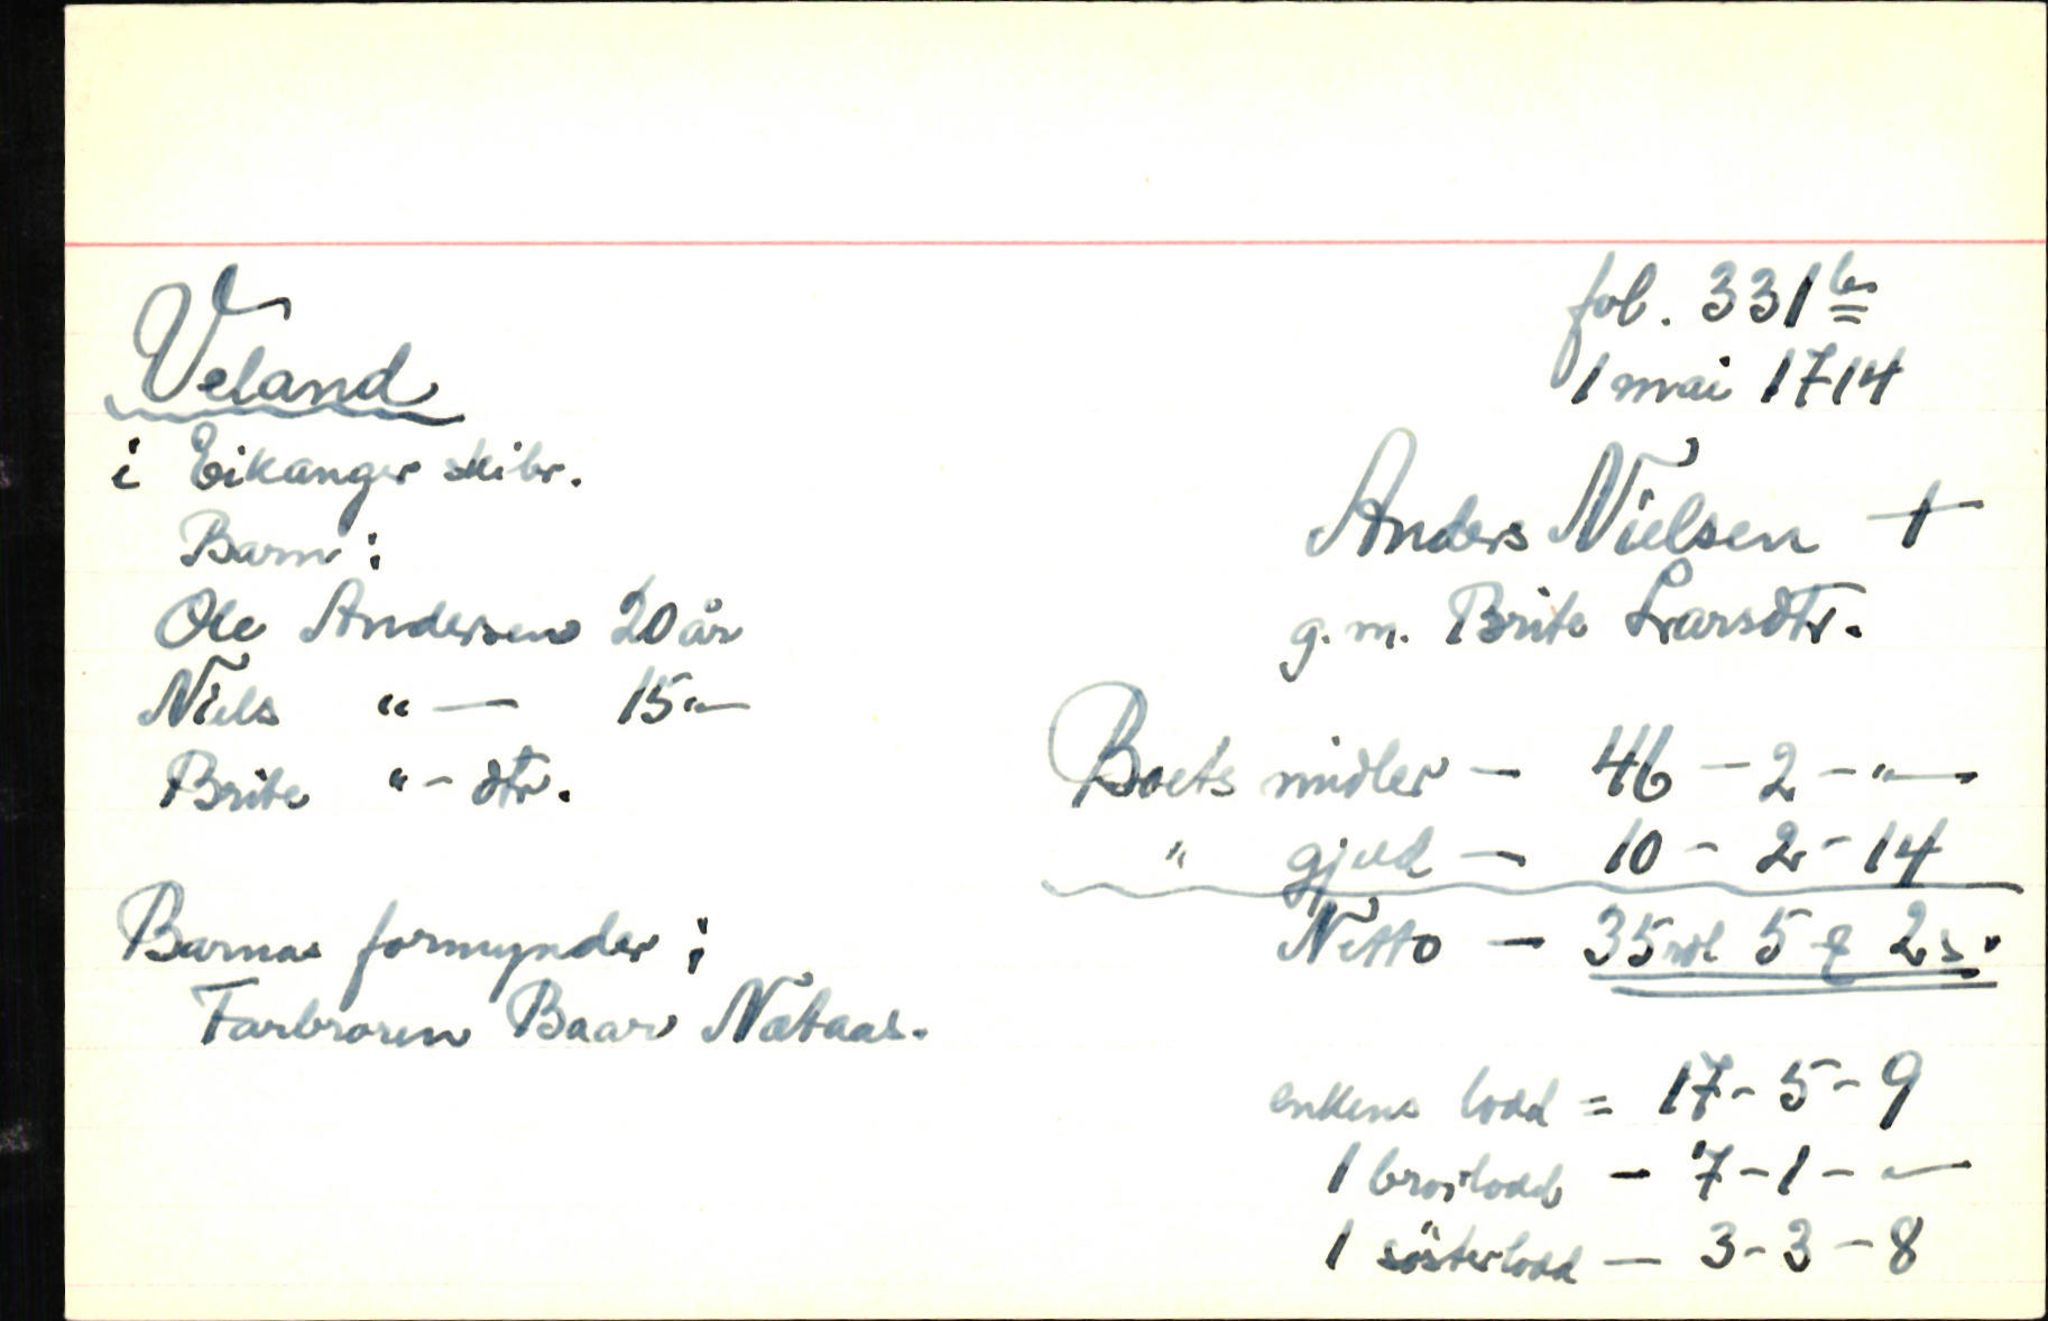 Veland
i Eikanger skibr.
Barn:
Ole Andersen 20 år
Niels "— 15"—
Brite "- dtr.
Barnas formynder:
Farbroren Baar Nataas.
fol. 331b
1 mai 1714
Anders Nielsen †
g.m. Brite Larsdtr.
Boets midler — 46 - 2 - "—
" gjeld — 10 - 2 - 14
Netto — 35 rdl 5 2 s.
enkens lodd = 17 - 5 - 9
1 brorlodd — 7 - 1 - "—
1 søsterlodd — 3 - 3 - 8